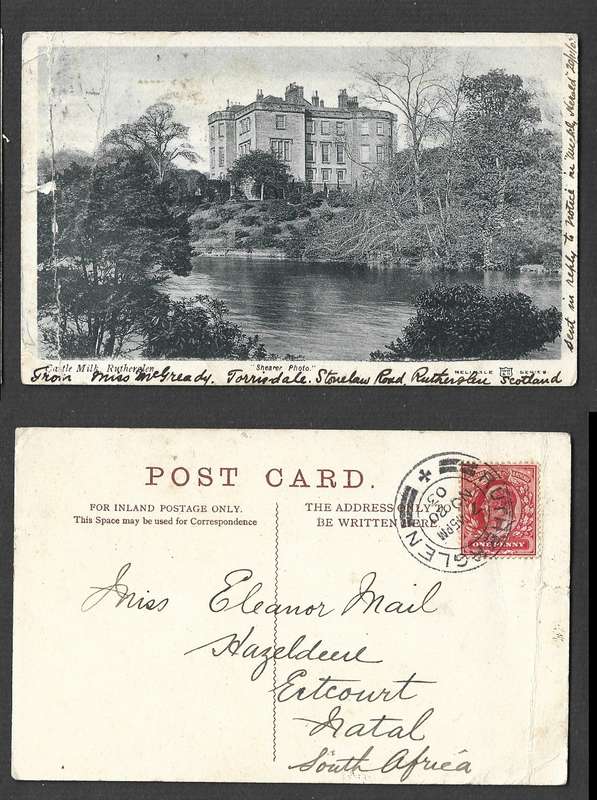 Castle Milk, Rutherglen
"Shearer Photo."
RELIABLE SERIES
From Miss McGready. Torrisdale. Stonelaw Road, Rutherglen Scotland
sent in reply to notice in "Weekly Herald"
POST CARD.
FOR INLAND POSTAGE ONLY.
This Space may be used for Correspondence
THE ADDRESS ONLY TO
BE WRITTEN HERE
RUTHERGLEN
NO 20
03
ONE PENNY
Miss Eleanor Mail
Hazeldene
Estcourt
Natal
South Africa